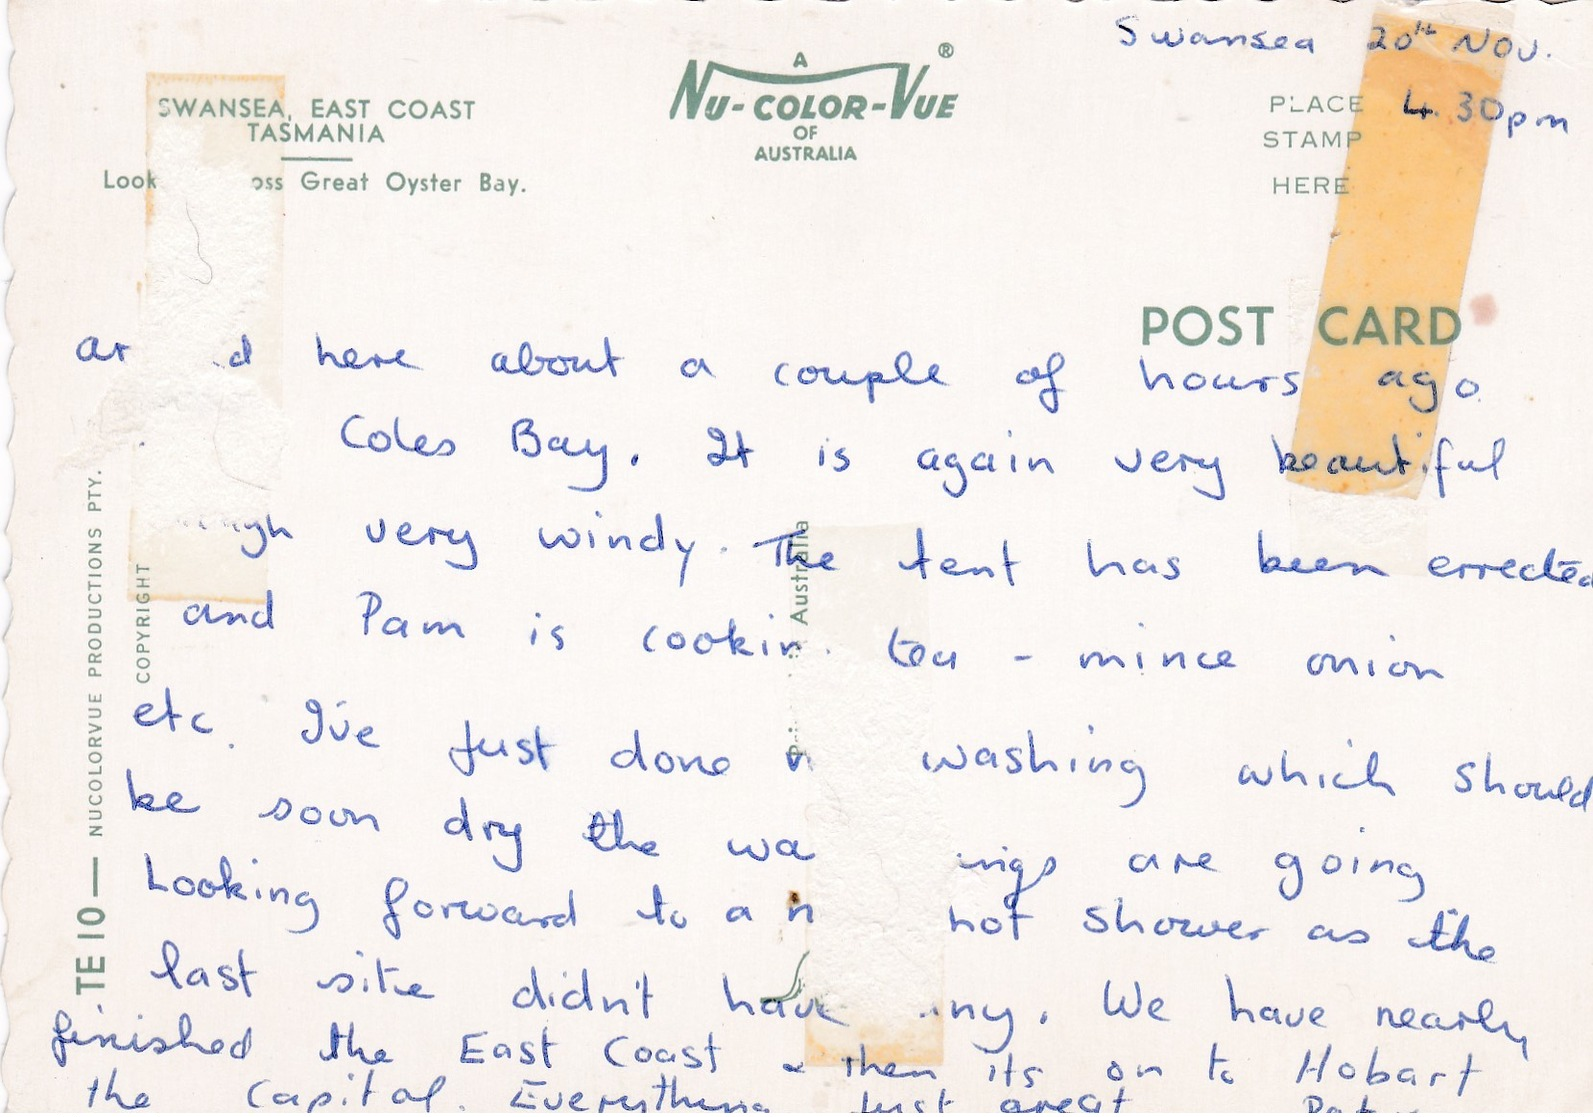 Swansea 20th Nov.
4.30pm
A
NU-COLOR-VUE ®
OF
AUSTRALIA
SWANSEA, EAST COAST
TASMANIA
Look oss Great Oyster Bay.
PLACE
STAMP
HERE
POST CARD
ar d here about a couple of hours ago
Coles Bay. It is again very beautiful
ugh very windy. The tent has been errected
and Pam is cookin tea - mince onion
etc. I've just done washing which should
be soon dry the wa ings are going
Looking forward to a n hot shower as the
last site didn't have ny. We have nearly
finished the East Coast & then its on to Hobart
the Capital. Everything just great
TE 10 — NUCOLORVUE PRODUCTIONS PTY.
COPYRIGHT
Australia